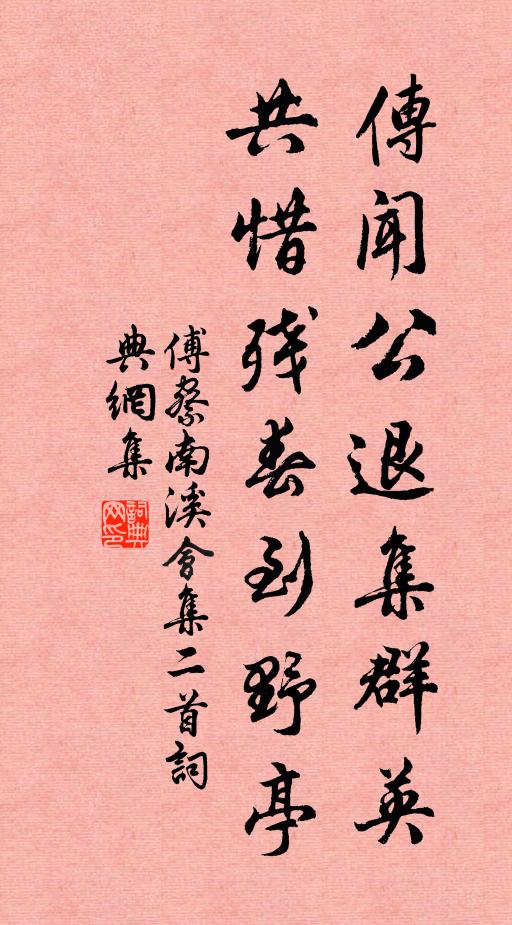 傳聞公退集群英
共惜残春到野亭
傅察南溪會集二首詞
典網集
詞典網印